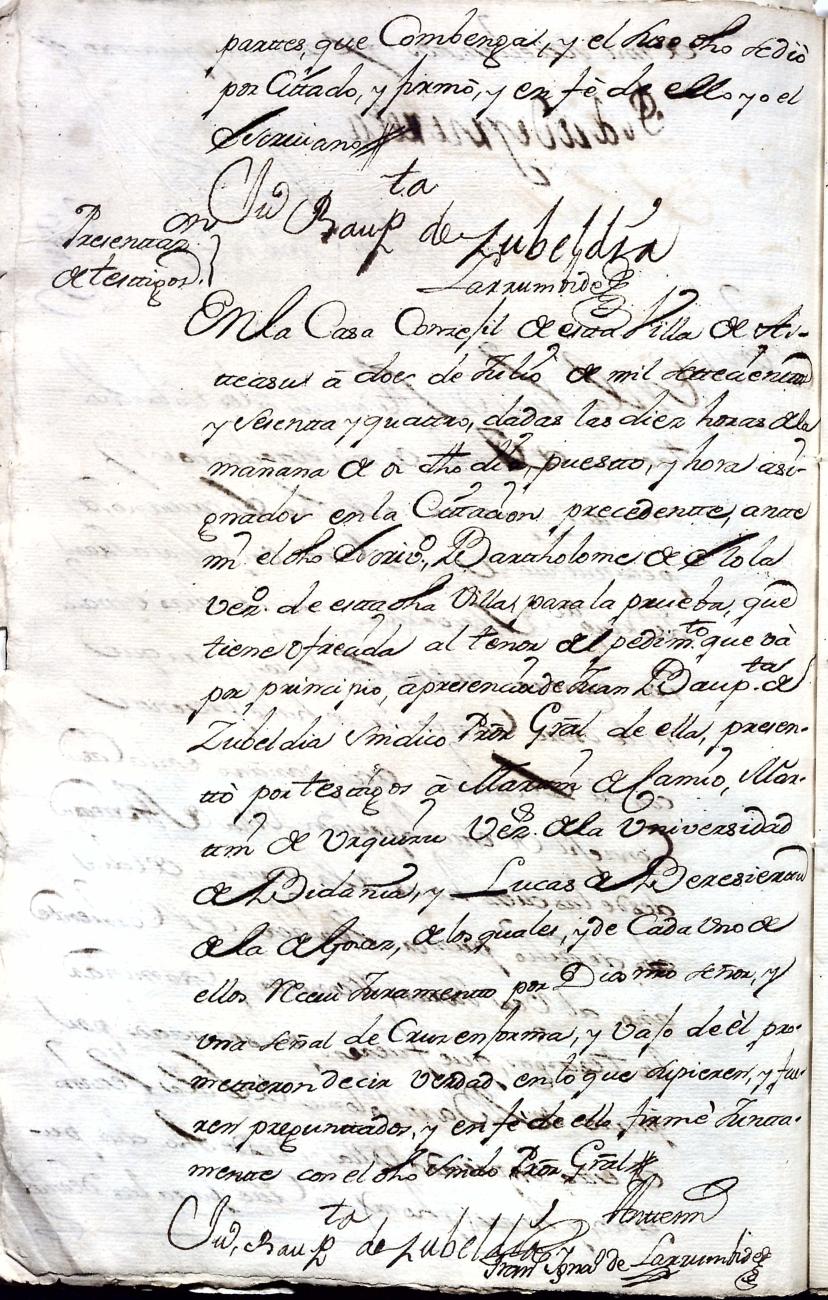 parttes, que Combenga, y el suso dho se dió
por Cittado, y firmó, y en fè de ello yo el
Escriuano
Juº Bauptta de Zubeldia
Larrumbide
Presenttaon
de testtigos.
En la Casa Conzejil de estta Villa de As-
tteasu à doce de Julio de mil settecientos
y Sesentta y quattro, dadas las diez horas de la
mañana de oi dho dia, puestto, y hora asi-
gnados en la Cittacion precedentte, antte
mi el dho Escrivº, Bartholome de Olola
vezº. de estta dha Villa, para la prueba, que
tiene ofrecida al tenor del pedimtto. que và
por principio, à presencia de Juan Bauptta. de
Zubeldia Sindico Prór Grál de ella, presen-
ttò por testtigos à Marttin de Camio, Mar-
ttin de Urquizu Vezs. de la Universidad
de Bidania, y Lucas de Beresiarttu
de la de Goiaz, de los quales, y de Cada uno de
ellos Reciui Juramentto por Dios nro señor, y
una señal de Cruz en forma, y vajo de èl pro-
mettieron decir verdad en lo que supieren, y fue-
ren preguntados, y en fe de ello firmè Juntta-
mentte con el dho Sindo Prór Grál
Juº, Bauptta de Zubeldia
Antte mi
Fran Ignaº de Larrumbide